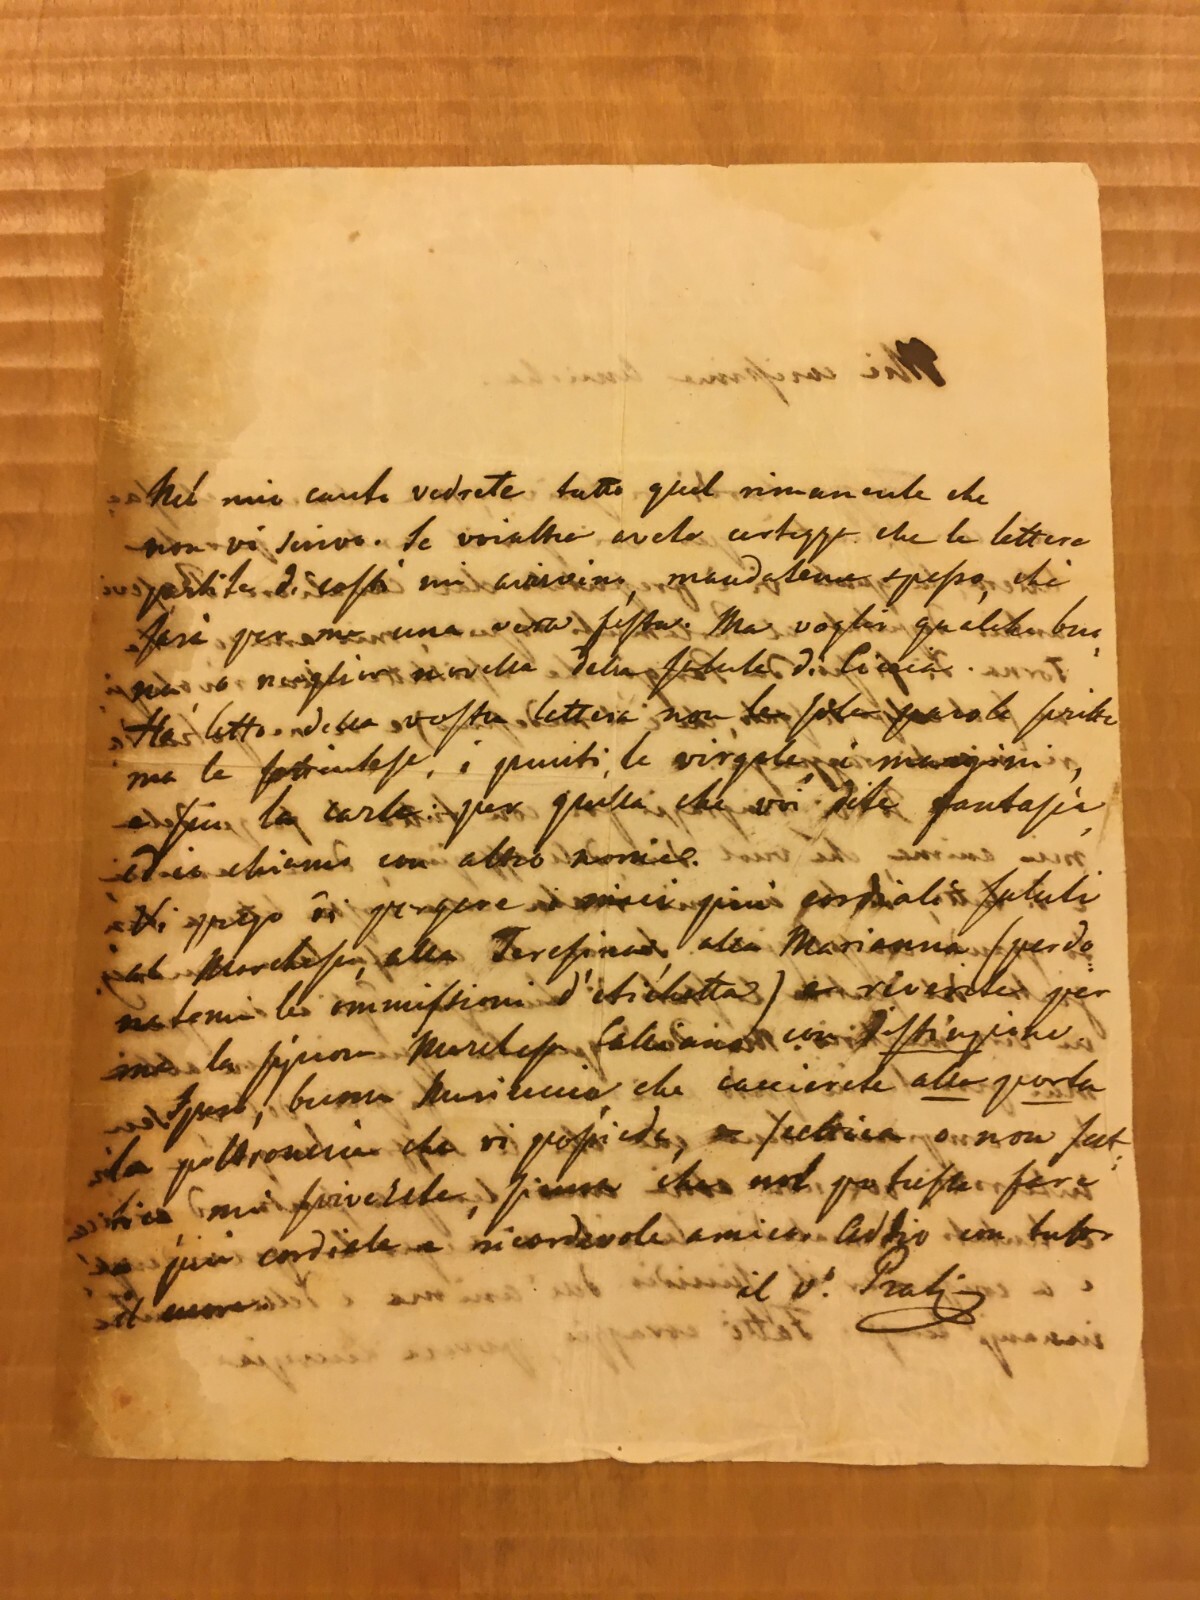 Nel mio canto vedrete tutto quel rimanente che
non vi scrivo. Se voialtre avete certezza che le lettere
partite di costì mi arrivino, mandatene spesso, chè
sarà per me una vera festa. Ma voglio qualche buo-
na, o miglior novella della salute di Ciccia.
Ho letto della vostra lettera non le sole parole scritte
ma le sottintese, i punti, le virgole, i margini,
e fin la carta per quella che voi dite fantasia,
ed io chiamo con altro nome.
Vi prego di porgere i miei più cordiali saluti
al Marchese, alla Teresina, alla Marianna (perdo=
natemi le ommissioni d'etichetta) e riverite per
me la signora Marchesa con distinzione
Spero, buona che caccerete alla porta
la poltroneria che vi possiede, e febbrica o non feb-
brica mi scriverete, sicura che nol potreste fare
a più cordiale e ricordevole amico. Addio con tutto
il cuore il v.º Prati